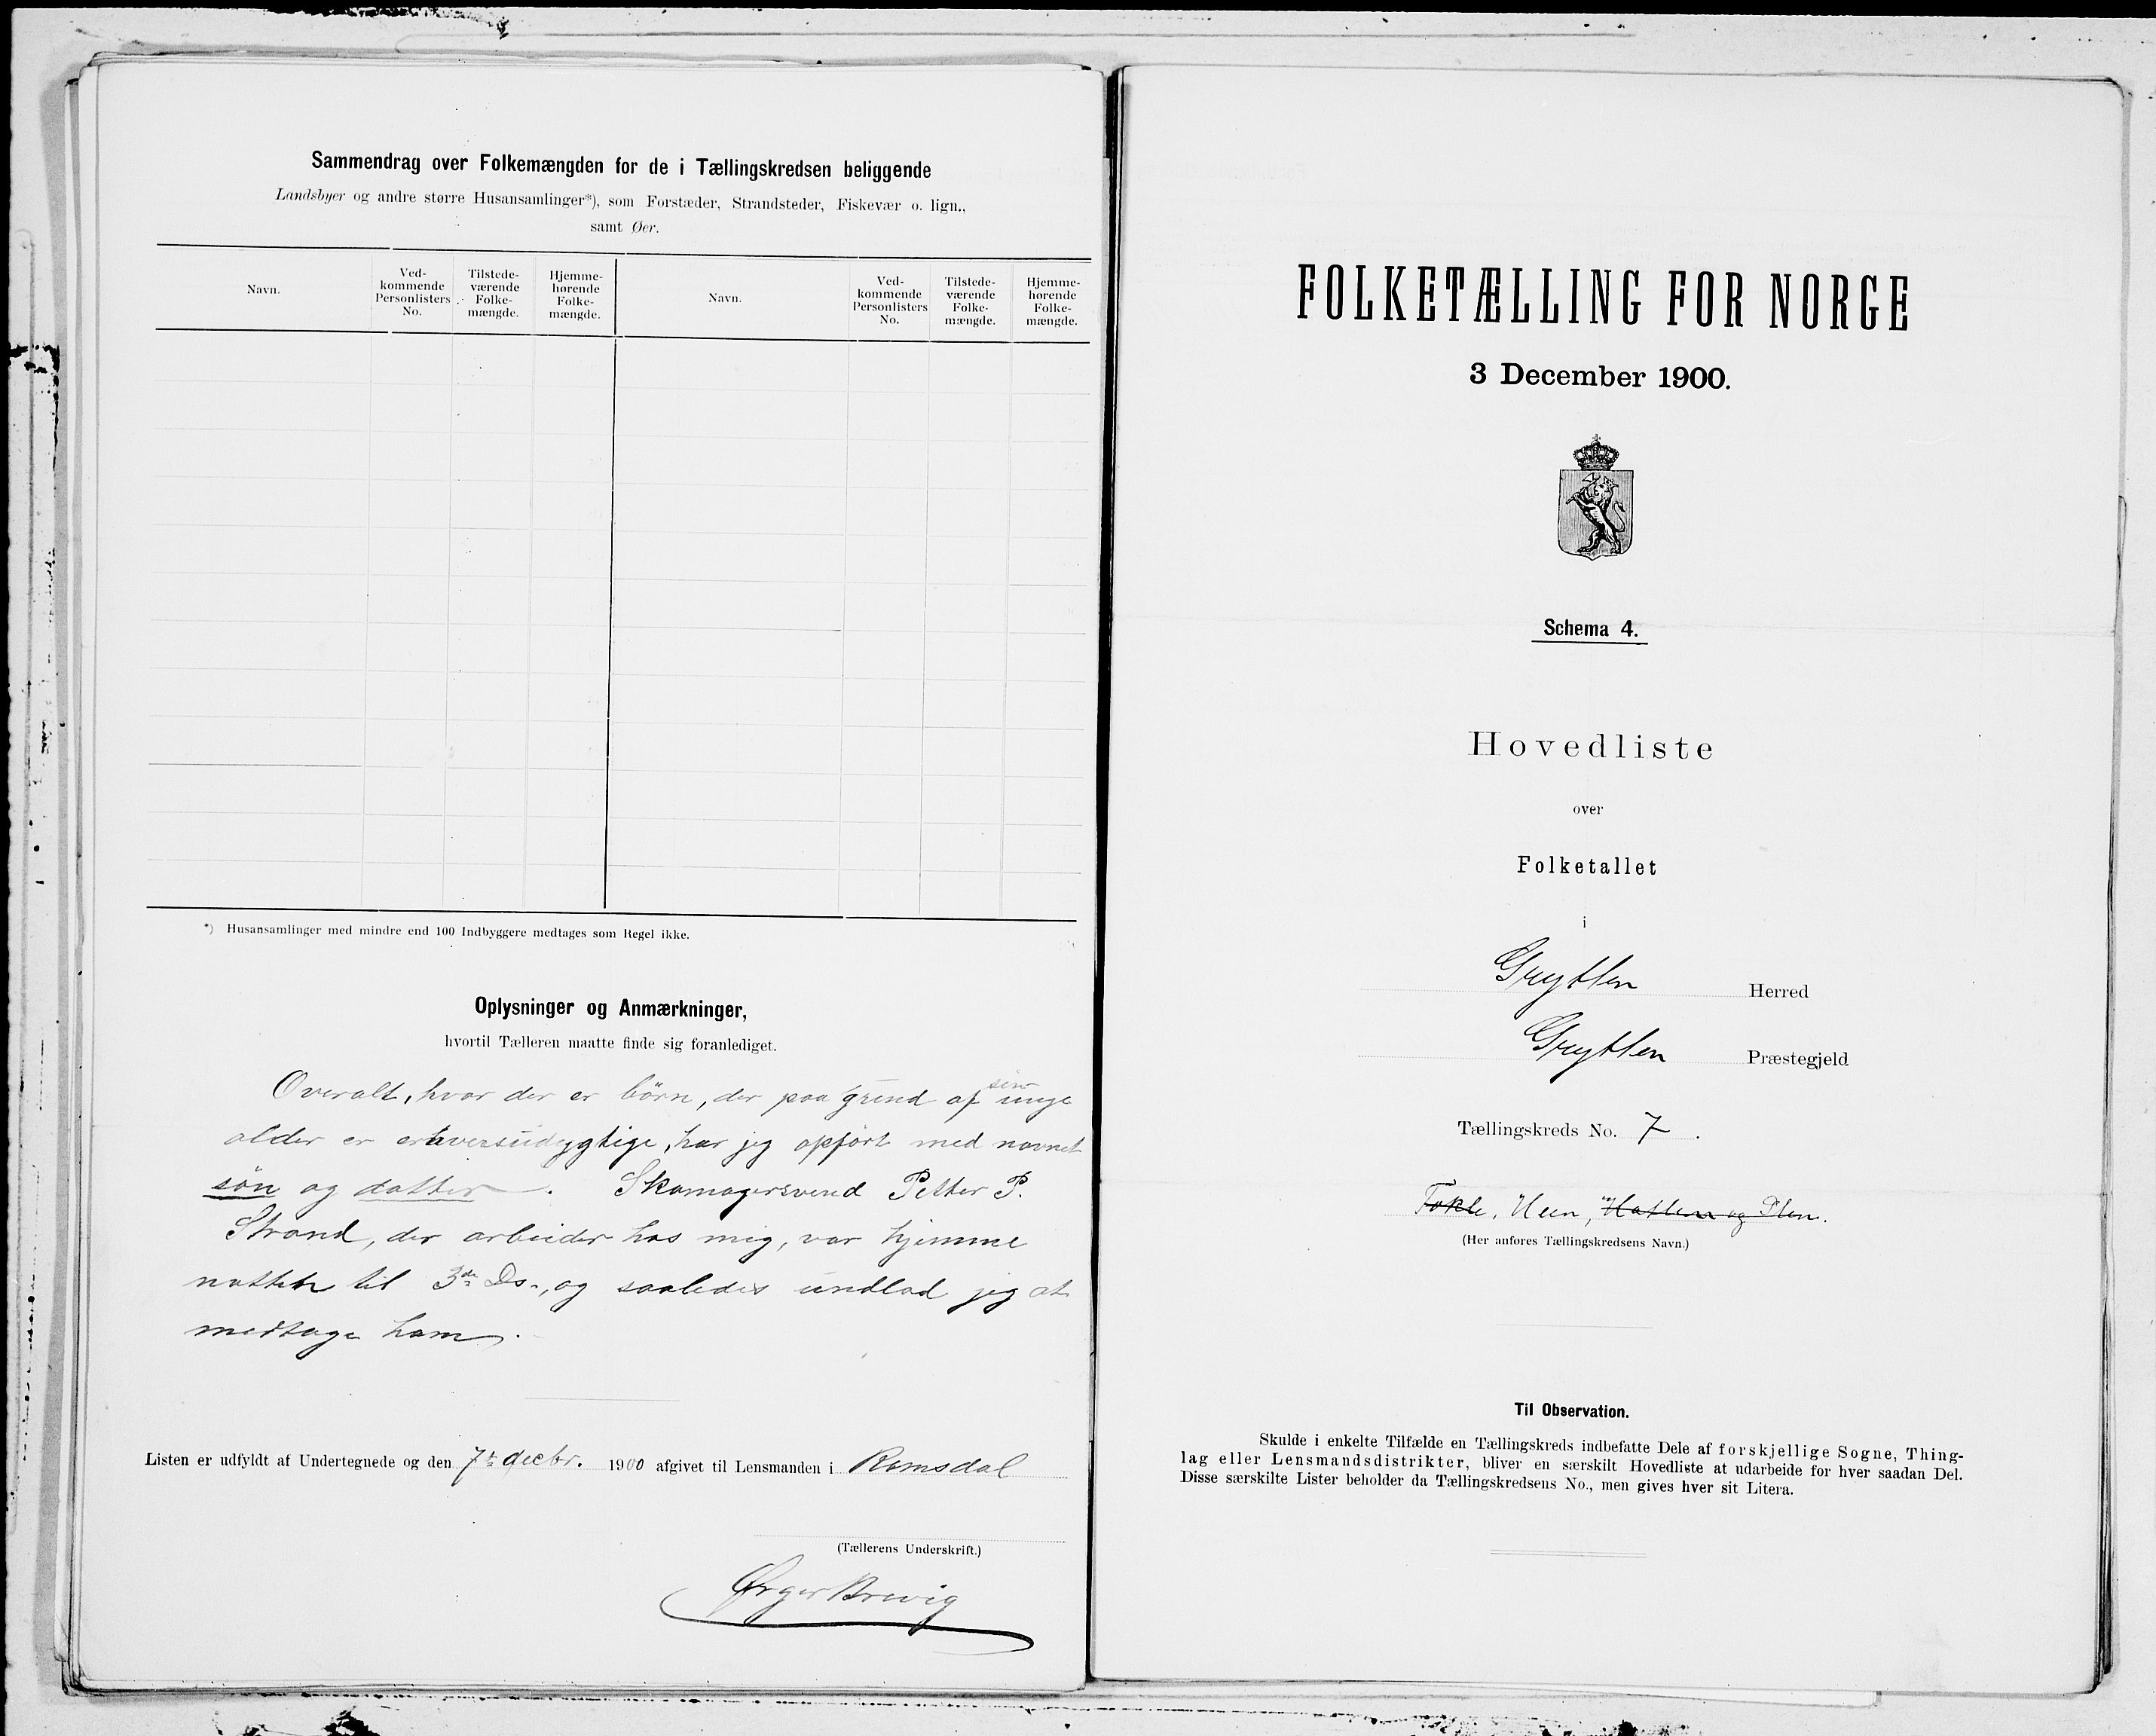 Sammendrag over Folkemængden for de i Tællingskredsen beliggende
Landsbyer og andre større Husansamlinger*), som Forstæder, Strandsteder, Fiskevær o. lign.,
samt Øer.
Navn.
Ved-
kommende
Personlisters
No.
Tilstede-
værende
Folke-
mængde.
Hjemme-
hørende
Folke-
mængde.
Navn.
Ved-
kommende
Personlisters
No.
Tilstede-
værende
Folke-
mængde.
Hjemme-
hørende
Folke-
mængde.
*) Husansamlinger med mindre end 100 Indbyggere medtages som Regel ikke.
Oplysninger og Anmærkninger,
hvortil Tælleren maatte finde sig foranlediget.
Overalt, hvor der er börn, der paa grund af sin unge
alder er erhversudygtige, har jeg opfört med navnet
sön og datter. Skomagersvend Petter P.
Strand, der arbeider hos mig, var hjemme
natten til 3de Ds., og saaledes undlod jeg at
medtage ham.
Listen er udfyldt af Undertegnede og den 7de decbr. 1900 afgivet til Lensmanden i Romsdal
(Tællerens Underskrift.)
Brevig
FOLKETÆLLING FOR NORGE
3 December 1900.
Schema 4.
Hovedliste
over
Folketallet
i
Grytten Herred
Grytten Præstegjeld
Tællingskreds No. 7.
Tokle, Hen,
(Her anføres Tællingskredsens Navn.)
Til Observation.
Skulde i enkelte Tilfælde en Tællingskreds indbefatte Dele af forskjellige Sogne, Thing-
lag eller Lensmandsdistrikter, bliver en særskilt Hovedliste at udarbeide for hver saadan Del.
Disse særskilte Lister beholder da Tællingskredsens No., men gives hver sit Litera.